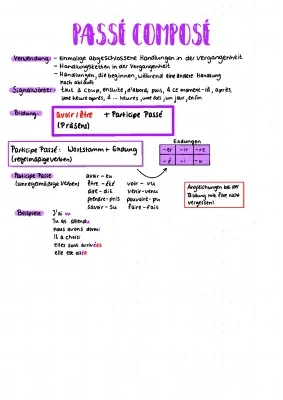 PASSÉ COMPOSÉ
Verwendung: - Einmalige abgeschlossene Handlungen in der Vergangenheit
- Handlungsketten in der Vergangenheit
- Handlungen, die beginnen, während eine andere Handlung
noch abläuft
Signalwörter: tout à coup, ensuite, d'abord, puis, à ce moment-là, après,
une heure après, à ... heures, une fois, un jour, enfin
Bildung: avoir / être + Participe Passé
(Präsens)
Participe Passé: Wortstamm + Endung
(regelmäßige Verben)
Endungen
-er -ir -re
-é -i -u
Participe Passé
(unregelmäßige Verben)
avoir - eu
être - été voir - vu
dire - dit venir - venu
prendre - pris pouvoir - pu
savoir - su faire - fait
Angleichungen bei der
Bildung mit être nicht
vergessen!
Beispiele: J'ai
Tu as attendu
nous avons dormi
Il a choisi
elles sont arrivées
elle est allée